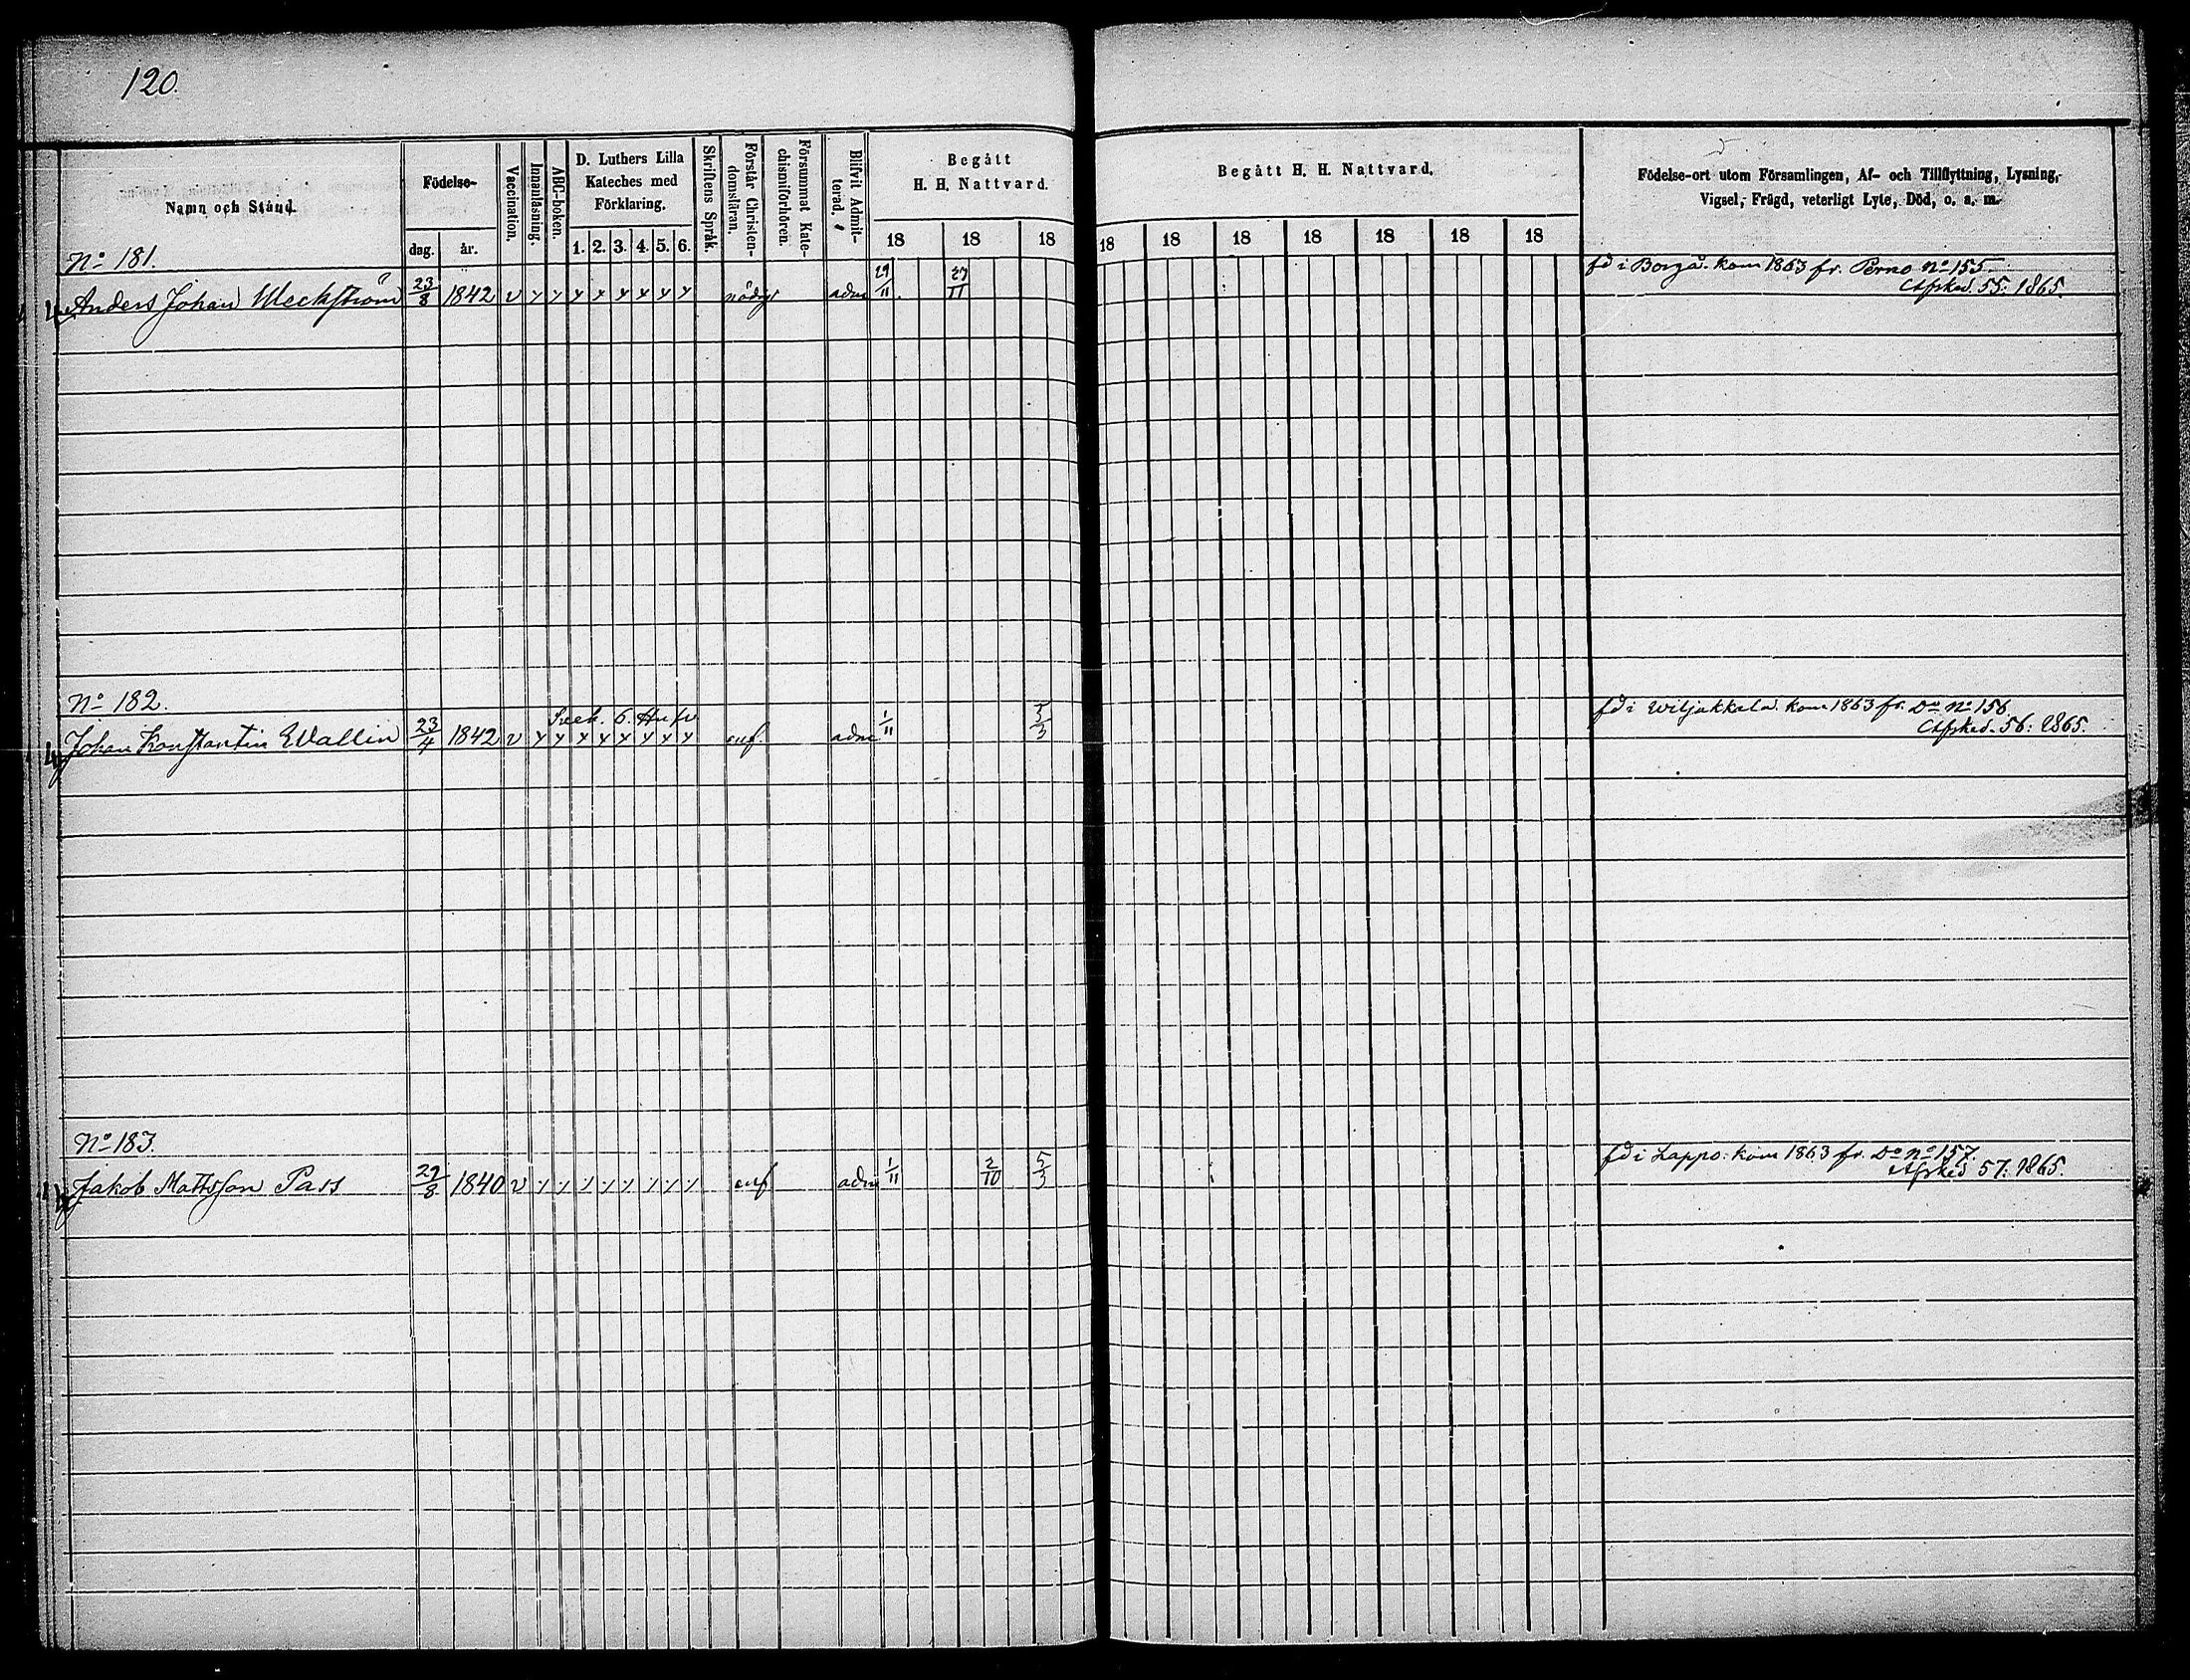 120.
Namn och Stånd.
Födelse-
dag.
år.
Vaccination.
Innanläsning.
ABC-boken.
D. Luthers Lilla
Kateches med
Förklaring.
1. 2. 3. 4. 5. 6.
Skriftens Språk.
Förstår Christen-
domsläran.
Försummat Kate-
chismiförhören.
Blifvit Admit-
terad.
Begått
H. H. Nattvard.
18 18 18
Begått H. H. Nattvard.
18 18 18 18 18 18 18
Födelse-ort utom Församlingen, Af- och Tillflyttning, Lysning,
Vigsel, Frägd, veterligt Lyte, Död, o. s. m.
No 181.
Anders Johan Meckström 23/8 1842 v y y y y y y y y nödigt adm 29/11 27/11
fd i Borgå. kom 1863 fr. Perno No 155.
Afsked. 55: 1865.
No 182.
6.
Johan Konstantin Wallin 23/4 1842 v y y y y y y y y adm 1/11 5/3
fd i Wiljakkala. kom 1863 fr. Do No 156
Afsked. 56: 1865.
No 183.
Jakob Mattsson Pass 29/8 1840 v y y y y y y y y adm 1/11 2/10 5/3
fd i Lappo: kom 1863 fr. Do No 157.
Afsked 57: 1865.